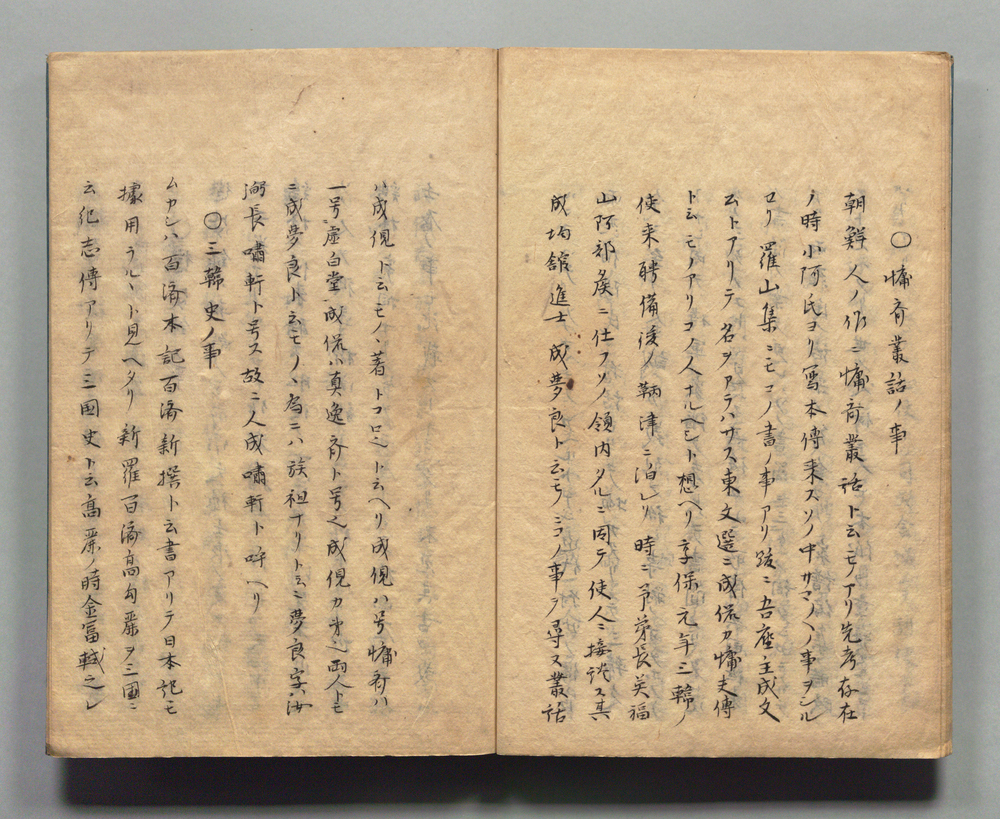 〇慵斎叢話ノ事
朝鮮人ノ作ニ慵斎叢話ト云モノアリ先考存在
ノ時小阿氏ヨリ寫本傳来スソノ中サマ〱ノ事ヲシル
セリ羅山集ニモコノ書ノ事アリ跋ニ吾座主成文
公トアリテ名ヲアラハサス東文選ニ成侃カ慵夫傳
ト云モノアリコノ人ナルヘシト想ヘリ享保元年三韓ノ
使来聘備後ノ鞆津ニ泊レリ時ニ予弟長英福
山阿部矦ニ仕フソノ領内タルニ因テ使人ニ接談ス其
成均舘進士成夢良ト云モノニコノ事ヲ尋ヌ叢話
ハ成俔ト云モノヽ著トコロヘト云ヘリ成俔ハ号慵斎ハ
一号虚白堂成侃ハ真逸斎ト号之成俔カ弟〻両人トモ
ニ成夢良ト云モノヽ為ニハ族祖ナリト云ニ夢良字ハ汝
弼長嘯軒ト号ス故ニ人成嘯軒ト呼ヘリ
〇三韓史ノ事
ムカシハ百済本記百済新撰ト云書アリテ日本記モ
據用ラルヽト見ヘタリ新羅百済高勾麗ヲ三國ニ
云紀志傳アリテ三國史ト云高麗ノ時金冨軾之レ